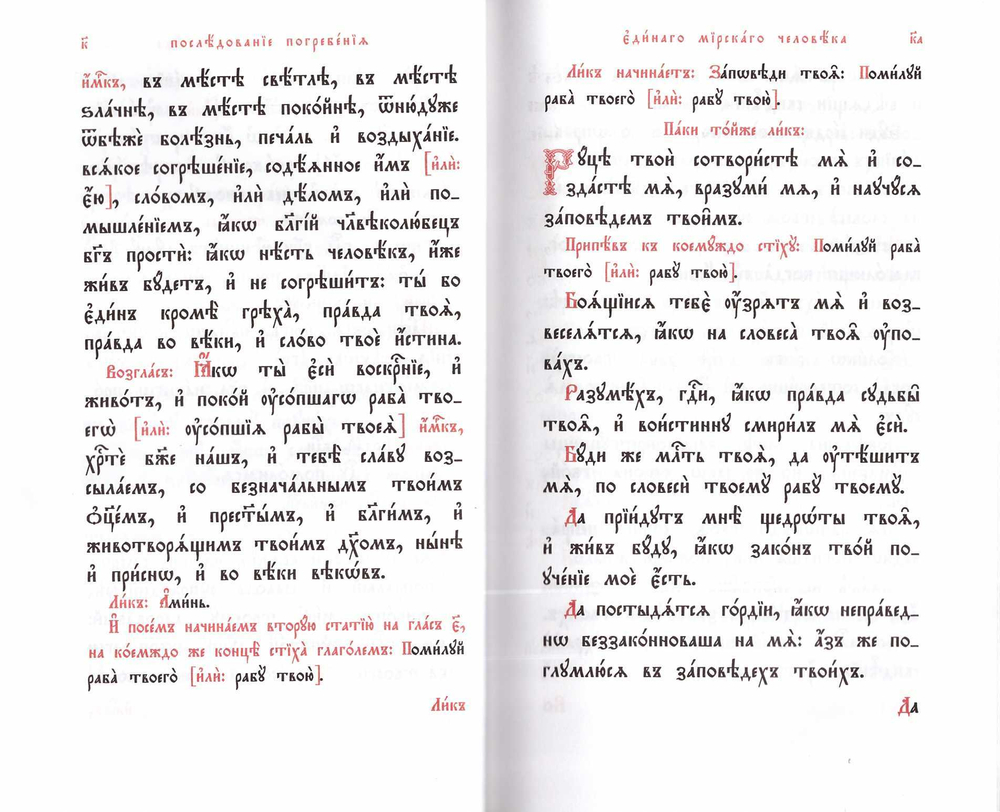 к҃
послѣ́дованїе погребе́нїѧ
и҆́мк҃ъ, въ мѣ́стѣ свѣ́тлѣ, въ мѣ́стѣ
ѕла́чнѣ, въ мѣ́стѣ поко́йнѣ, ѿню́дꙋже
ѿбѣжѐ болѣ́знь, печа́ль и҆ воздыха́нїе.
всѧ́кое согрѣше́нїе, содѣ́ѧнное и҆́мъ [и҆лѝ:
є҆́ю], сло́вомъ, и҆лѝ дѣ́ломъ, и҆лѝ по_
мышле́нїемъ, ꙗ҆́кѡ бл҃гі́й чл҃вѣколю́бецъ
бг҃ъ простѝ: ꙗ҆́кѡ нѣ́сть человѣ́къ, и҆́же
жи́въ бꙋ́детъ, и҆ не согрѣши́тъ: ты́ бо
є҆ди́нъ кромѣ̀ грѣха̀, пра́вда твоѧ̀,
пра́вда во вѣ́ки, и҆ сло́во твоѐ и҆́стина.
Возгла́съ: Ꙗ҆́кѡ ты̀ є҆сѝ воскр҃нїе, и҆
живо́тъ, и҆ поко́й ᲂу҆со́пшагѡ раба̀ тво_
егѡ̀ [и҆лѝ: ᲂу҆со́пшїѧ рабы̀ твоеѧ̀] и҆́мк҃ъ,
хр҃тѐ бж҃е на́шъ, и҆ тебѣ̀ сла́вꙋ воз_
сыла́емъ, со безнача́льнымъ твои́мъ
ѻ҆ц҃е́мъ, и҆ прест҃ы́мъ, и҆ бл҃ги́мъ, и҆
животворѧ́щимъ твои́мъ дх҃омъ, ны́нѣ
и҆ при́снѡ, и҆ во вѣ́ки вѣкѡ́въ.
Ли́къ: А҆ми́нь.
И҆ посе́мъ начина́емъ вторꙋ́ю статїю̀ на гла́съ є҃,
на ко́емждо же концѣ̀ стїха̀ глаго́лемъ: Поми́лꙋй
раба̀ твоего̀ [и҆лѝ: рабꙋ̀ твою̀].
Ли́къ
є҆ди́наго мїрска́го человѣ́ка
к҃а
Ли́къ начина́етъ: За́пѡвѣди твоѧ̑: Поми́лꙋй
раба̀ твоего̀ [и҆лѝ: рабꙋ̀ твою̀].
Па́ки то́йже ли́къ:
Рꙋ́цѣ твоѝ сотвори́стѣ мѧ̀ и҆ со_
зда́стѣ мѧ̀, вразꙋми́ мѧ, и҆ наꙋчꙋ́сѧ
за́повѣдем твои̑м.
Припѣ́въ къ коемꙋ́ждо стїхꙋ̀: Поми́лꙋй раба̀
твоего̀ [и҆лѝ: рабꙋ̀ твою̀].
Боѧ́щїисѧ тебє̀ ᲂу҆́зрѧтъ мѧ̀ и҆ воз_
веселѧ́тсѧ, ꙗ҆́кѡ на словеса̀ твоѧ̑ ᲂу҆по_
ва́хъ.
Разꙋмѣ́хъ, гд҃и, ꙗ҆́кѡ пра́вда сꙋдьбы̑
твоѧ̑, и҆ вои́стиннꙋ смири́лъ мѧ̀ є҆сѝ.
Бꙋ́ди же мл҃ть твоѧ̀, да ᲂу҆тѣ́шитъ
мѧ̀, по словесѝ твоемꙋ̀ рабꙋ̀ твоемꙋ̀.
Да прїи́дꙋтъ мнѣ̀ щедрѡ́ты твоѧ̑,
и҆ жи́въ бꙋ́дꙋ, ꙗ҆́кѡ зако́нъ тво́й по_
ꙋче́нїе моѐ є҆́сть.
Да постыдѧ́тсѧ го́рдїи, ꙗ҆́кѡ непра́вед_
нѡ беззако́нноваша на мѧ̀: а҆́зъ же по_
глꙋмлю́сѧ въ за́повѣдехъ твои́хъ.
Да